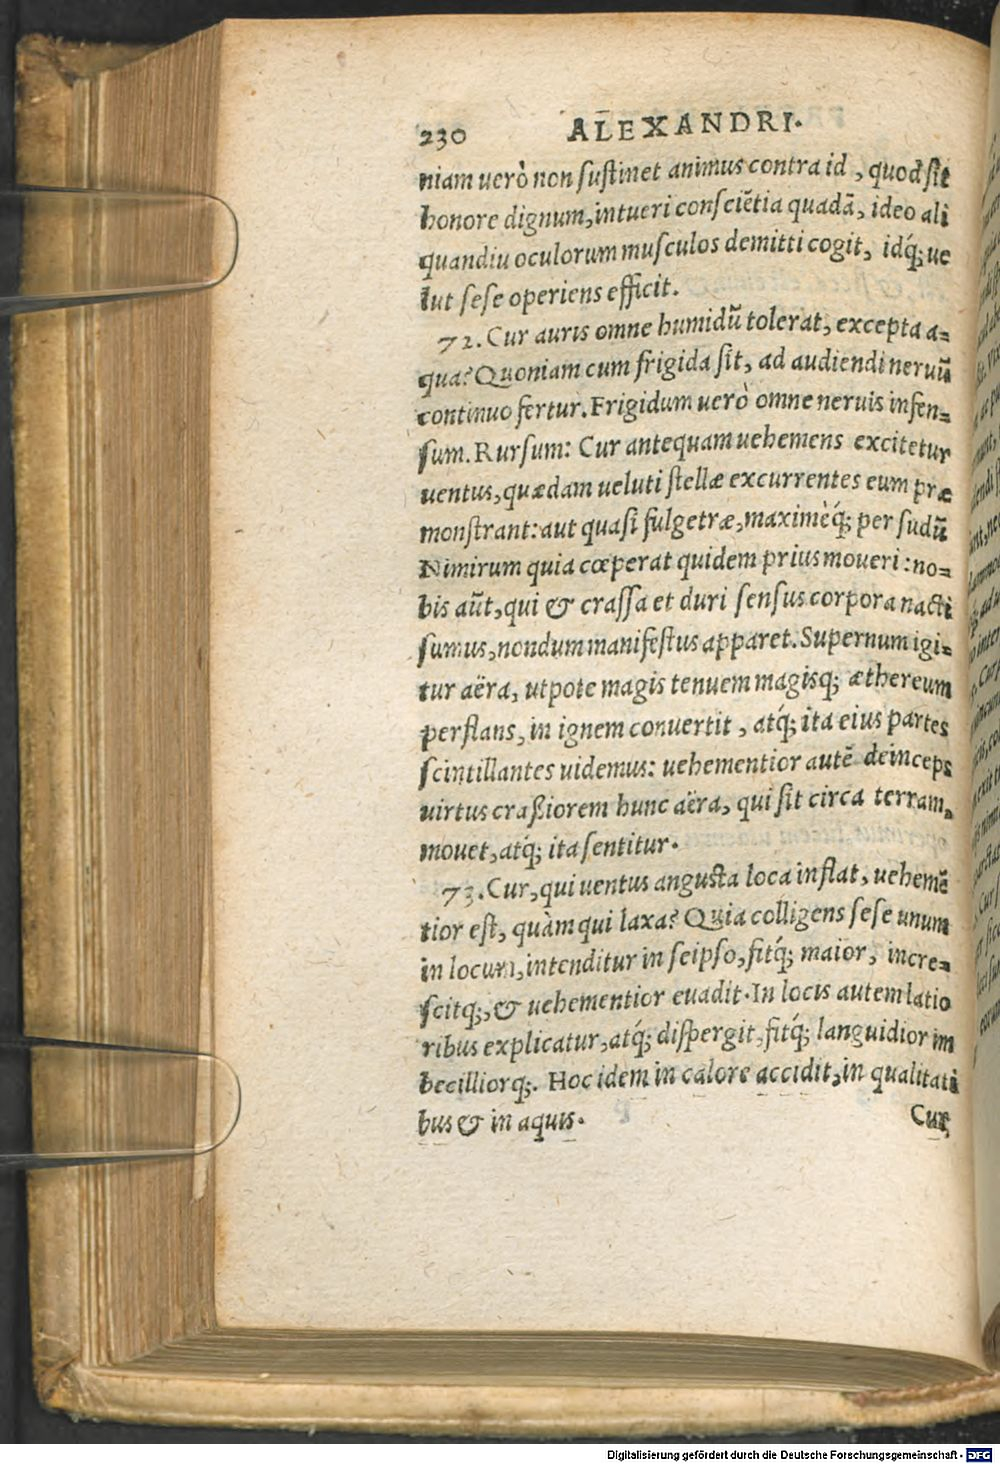 230 ALEXANDRI.
niam uerò non sustinet animus contra id, quod sit
honore dignum, intueri consciẽtia quadã, ideo ali
quandiu oculorum musculos demitti cogit, idq́; ue
lut sese operiens efficit.
72. Cur auris omne humidũ tolerat, excepta a=
qua? Quoniam cum frigida sit, ad audiendi neruũ
continuo fertur. Frigidum uerò omne neruis infen=
sum. Rursum: Cur antequam uehemens excitetur
uentus, quædam ueluti stellæ excurrentes eum præ
monstrant: aut quasi fulgetræ, maximèq́; per sudũ
Nimirum quia cœperat quidem prius moueri: no=
bis aũt, qui & crassa et duri sensus corpora nacti
sumus, nondum manifestus apparet. Supernum igi=
tur aëra, utpote magis tenuem magisq; æthereum
perflans, in ignem conuertit, atq́; ita eius partes
scintillantes uidemus: uehementior autẽ deinceps
uirtus craßiorem hunc aëra, qui sit circa terram,
mouet, atq́; ita sentitur.
73. Cur, qui uentus angusta loca inflat, uehemẽ
tior est, quàm qui laxa? Quia colligens sese unum
in locum, intenditur in seipso, fitq́; maior, incre=
scitq;, & uehementior euadit. In locis autem latio
ribus explicatur, atq́; dispergit, fitq́; languidior im
becilliorq;. Hoc idem in calore accidit, in qualitati
bus & in aquis. Cur,
Digitalisierung gefördert durch die Deutsche Forschungsgemeinschaft - DFG